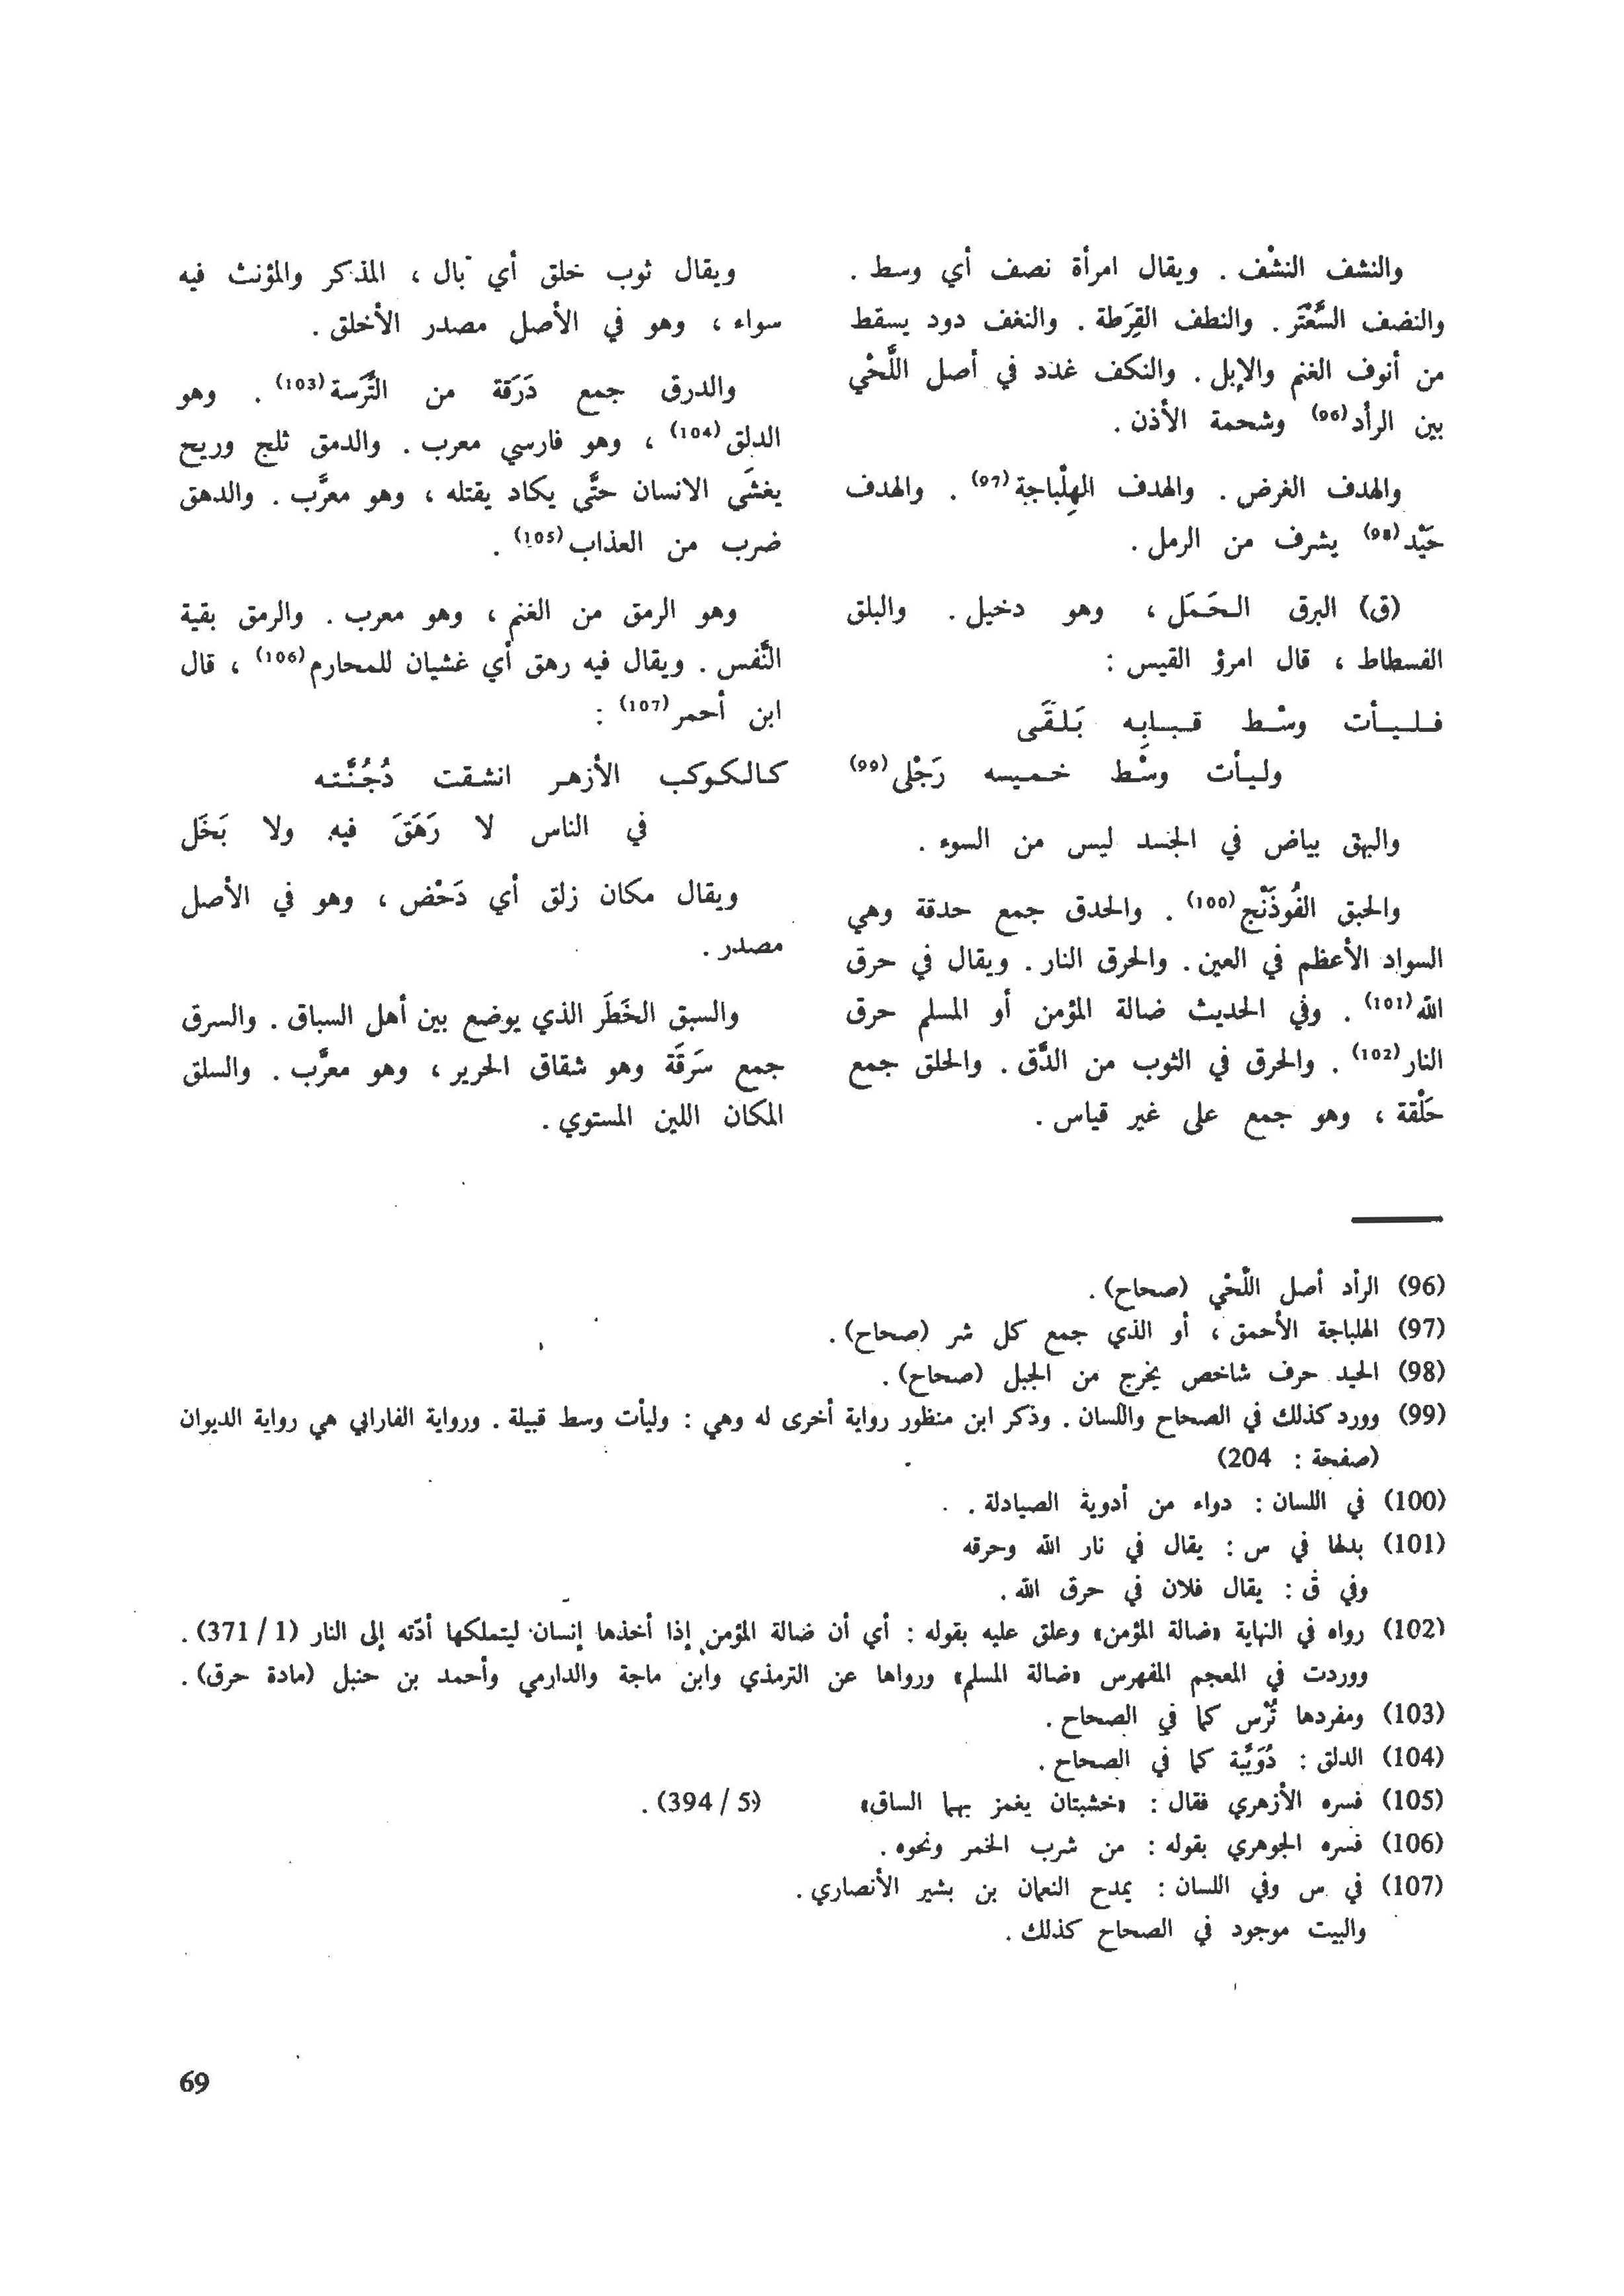 والنشف النشْف . ويقال امرأة نصف أي وسط .
والنضف السَّعْتَر . والنطف القِرَطة . والنغف دود يسقط
من أنوف الغنم والإبل . والنكف غدد في أصل اللَّحْي
بين الرأد(96) وشحمة الأذن .
والهدف الغرض . والهدف الهِلْباجة(97) . والهدف
حَيْد(98) يشرف من الرمل .
(ق) البرق الـحَـمَـل ، وهو دخيل . والبلق
الفسطاط ، قال امرؤ القيس :
فـلـيـأت وسْـط قـبـابِـه بَـلـقَـى
ولـيـأت وسْـط خـمـيـسه رَجْلى(99)
والبهق بياض في الجسد ليس من السوء .
والحبق الفُوذَنْج(100) . والحدق جمع حدقة وهي
السواد الأعظم في العين . والحرق النار . ويقال في حرق
الله(101) . وفي الحديث ضالة المؤمن أو المسلم حرق
النار(102) . والحرق في الثوب من الدَّق . والحلق جمع
حَلْقة ، وهو جمع على غير قياس .
ويقال ثوب خلق أي بال ، المذكر والمؤنث فيه
سواء ، وهو في الأصل مصدر الأخلق .
والدرق جمع دَرَقة من التُّرَسة(103) . وهو
الدلق(104) ، وهو فارسي معرب . والدمق ثلج وريح
يغشَى الانسان حتَّى يكاد يقتله ، وهو معرَّب . والدهق
ضرب من العذاب(105) .
وهو الرمق من الغنم ، وهو معرب . والرمق بقية
النَّفس . ويقال فيه رهق أي غشيان للمحارم(106) ، قال
ابن أحمر(107) :
كـالـكـوكب الأزهـر انشـقت دُجُـنَّـتـه
في الناس لا رَهَقَ فيه ولا بَخَل
ويقال مكان زلق أي دَحْض ، وهو في الأصل
مصدر .
والسبق الخَطَر الذي يوضع بين أهل السباق . والسرق
جمع سَرَقَة وهو شقاق الحرير ، وهو معرَّب . والسلق
المكان اللين المستوي .
(96) الرأد أصل اللَّحْي (صحاح) .
(97) الهلباجة الأحمق ، أو الذي جمع كل شر (صحاح) .
(98) الحيد حرف شاخص يخرج من الجبل (صحاح) .
(99) وورد كذلك في الصحاح واللسان . وذكر ابن منظور رواية أخرى له وهي : وليأت وسط قبيلة . ورواية الفارابي هي رواية الديوان
(صفحة : 204)
(100) في اللسان : دواء من أدوية الصيادلة .
(101) بدلها في س : يقال في نار الله وحرقه
وفي ق : يقال فلان في حرق الله .
(102) رواه في النهاية «ضالة المؤمن» وعلق عليه بقوله : أي أن ضالة المؤمن إذا أخذها إنسان ليتملكها أدّته إلى النار (1 / 371) .
ووردت في المعجم المفهرس «ضالة المسلم» ورواها عن الترمذي وابن ماجة والدارمي وأحمد بن حنبل (مادة حرق) .
(103) ومفردها تُرْس كما في الصحاح .
(104) الدلق : دُوَيْبَّة كما في الصحاح .
(105) فسره الأزهري فقال : «خشبتان يغمز بهما الساق» (5 / 394) .
(106) فسره الجوهري بقوله : من شرب الخمر ونحوه .
(107) في س وفي اللسان : يمدح النعمان بن بشير الأنصاري .
والبيت موجود في الصحاح كذلك .
69